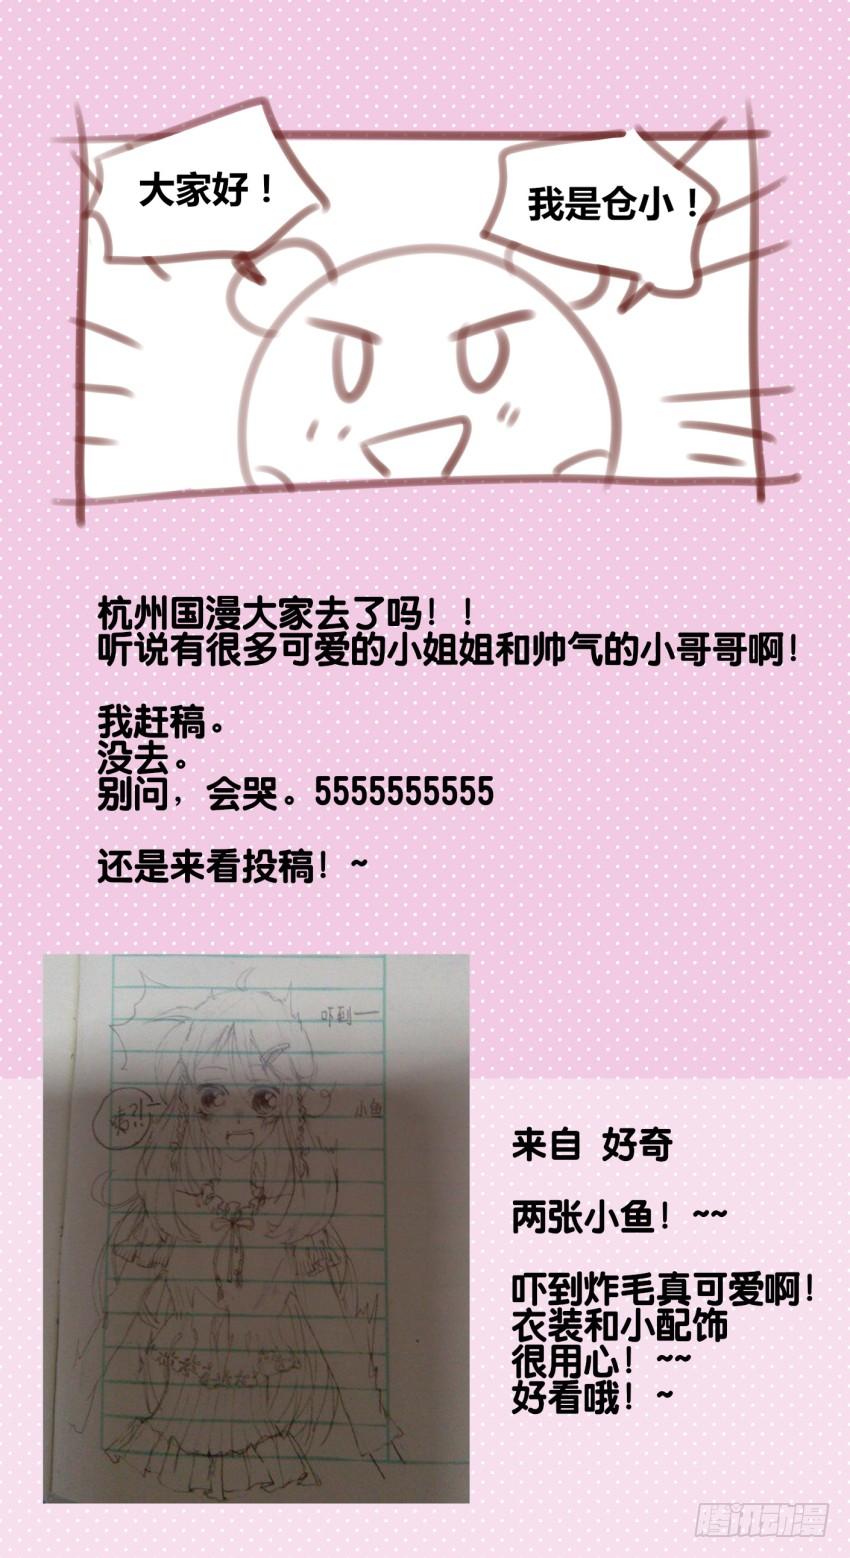 大家好！
我是仓小！
杭州国漫大家去了吗！！
听说有很多可爱的小姐姐和帅气的小哥哥啊！
我赶稿。
没去。
别问，会哭。5555555555
还是来看投稿！~
吓到一
啥?!一
小鱼
来自 好奇
两张小鱼！~~
吓到炸毛真可爱啊！
衣装和小配饰
很用心！~~
好看哦！~
腾讯动漫